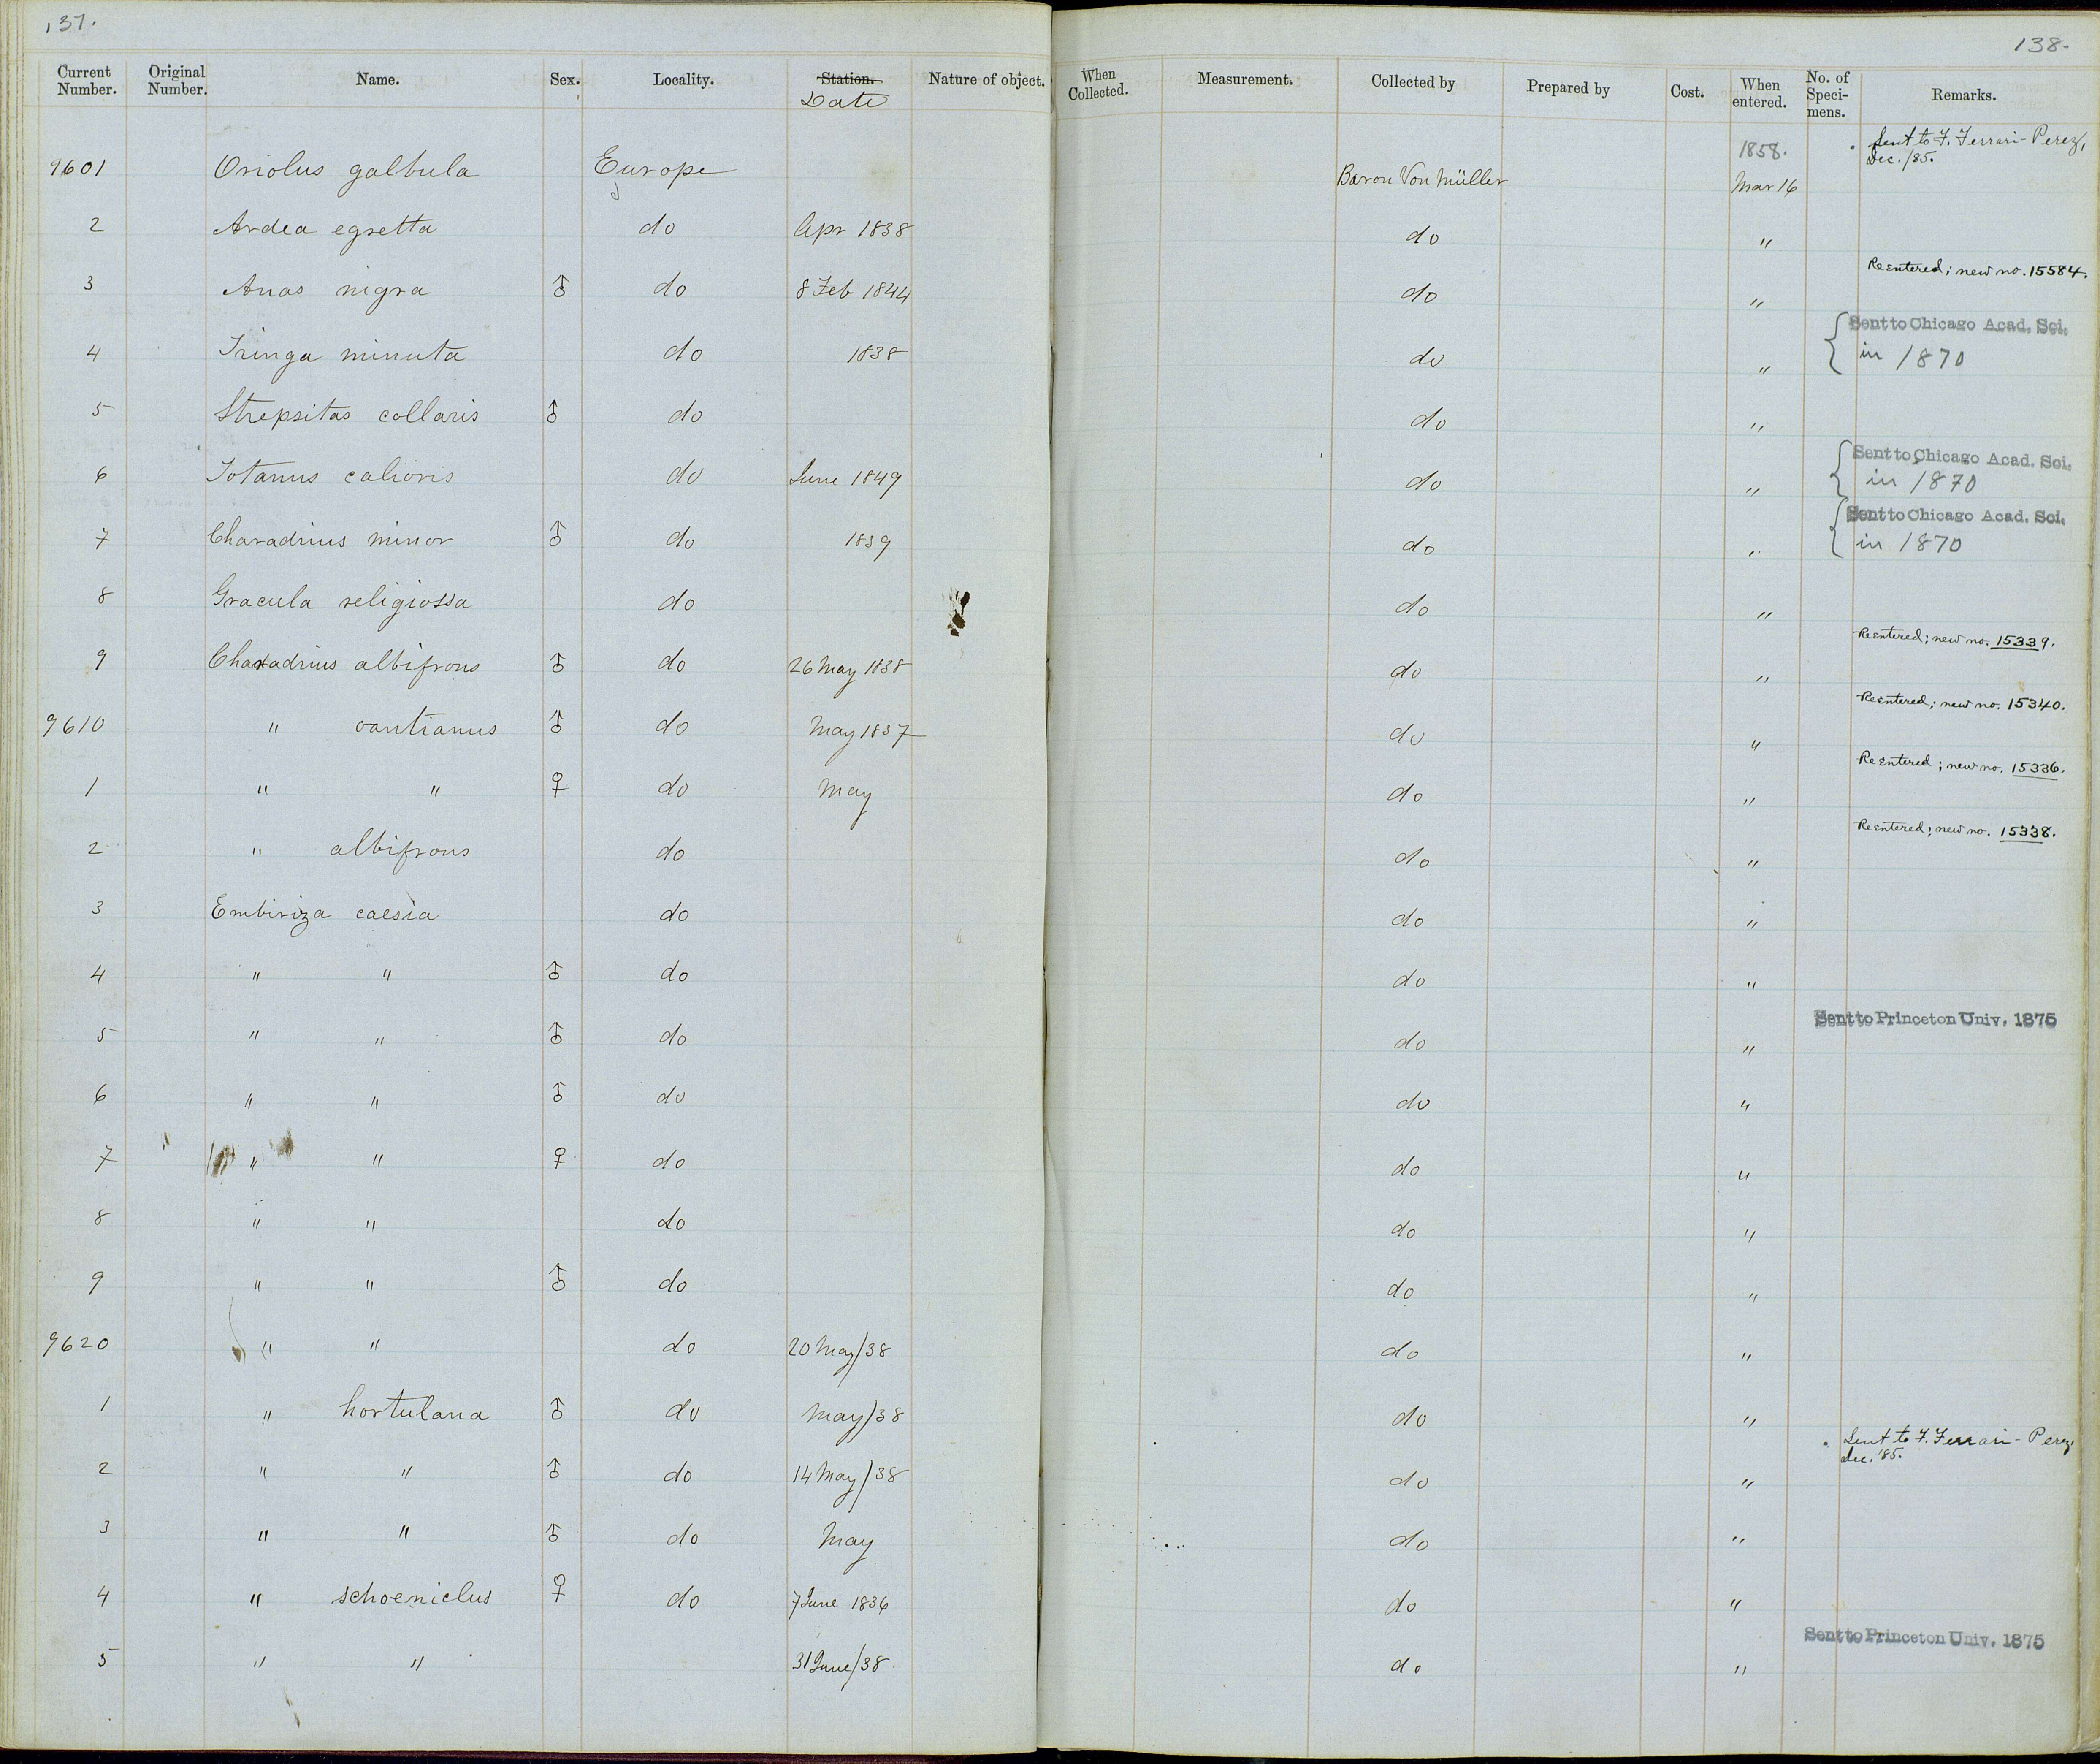 137.
Current Number. Original Number. Name. Sex. Locality. Station. Date Nature of object.
9601 Oriolus galbula Europe
2 Ardea egretta do Apr 1838
3 Anas nigra ♂ do 8 Feb 1844
4 Tringa minuta do 1838
5 Strepsilas collaris ♂ do
6 Totanus calioris do June 1849
7 Charadrius minor ♂ do 1839
8 Gracula religiossa do
9 Charadrius albifrons ♂ do 26 May 1838
9610 " cantianus ♂ do May 1837
1 " " ♀ do May
2 " albifrons do
3 Embiriza caesia do
4 " " ♂ do
5 " " ♂ do
6 " " ♂ do
7 " " ♀ do
8 " " do
9 " " ♂ do
9620 " " do 20 May/38
1 " hortulana ♂ do May/38
2 " " ♂ do 14 May/38
3 " " ♂ do May
4 " schoeniclus ♀ do 7 June 1836
5 " " 31 June/38
138.
When Collected. Measurement. Collected by Prepared by Cost. When entered. No. of Specimens. Remarks.
1858. Sent to F. Ferrari-Perez, Dec./85.
Baron Von Müller Mar 16
do "
Reentered; new no. 15584.
do "
Sent to Chicago Acad. Sci.
do " in 1870
do "
Sent to Chicago Acad. Sci.
do " in 1870
Sent to Chicago Acad. Sci.
do " in 1870
do "
Reentered; new no. 15339.
do "
Reentered; new no. 15340.
do "
Reentered; new no. 15336.
do "
Reentered; new no. 15338.
do "
do "
do "
Sent to Princeton Univ. 1875
do "
do "
do "
do "
do "
do "
do "
Sent to F. Ferrari-Perez,
Dec. '85.
do "
do "
do "
Sent to Princeton Univ. 1875
do "